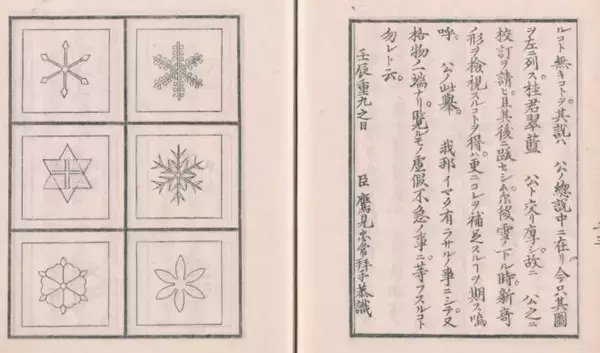 ルコト無キコトヲ其説ハ 公ノ總説中ニ在リ今只其圖
ヲ左ニ列ス。桂君翠藍 公ト交リ厚シ。故ニ 公之ニ
校訂ヲ請ヒ且其後ニ跋セシム。尓後雪ノ下ル時。新奇
ノ形ヲ檢視スルコトヲ得ハ。更ニコレヲ補足スルヿヲ期ス嗚
呼。 公ノ此擧。 我邦イマタ有ラサルノ事ニシテ。又
格物ノ一端ナリ。覽ルモノ虚假不急ノ事ニ等フスルコト
勿レト云。
壬辰重九之日 臣鷹見忠常拜手恭識